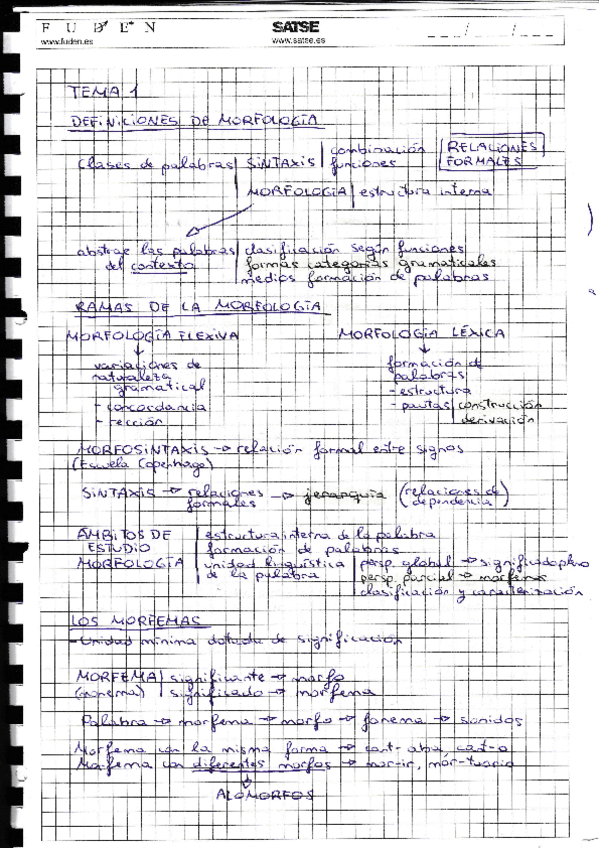 F U D E N
www.fuden.es
SATSE
www.satse.es
TEMA 1
DEFINICIONES DE MORFOLOGÍA
Clases de palabras | SINTAXIS | combinación
funciones
RELACIONES
FORMALES
MORFOLOGÍA | estructura interna
abstrae las palabras
del contexto
clasificación según funciones
formas categorías gramaticales
medios formación de palabras
RAMAS DE LA MORFOLOGÍA
MORFOLOGÍA FLEXIVA
↓
variaciones de
naturaleza
gramatical
- concordancia
- rección
MORFOLOGÍA LÉXICA
↓
formación de
palabras
- estructura
- pautas | construcción
derivación
MORFOSINTAXIS → relación formal entre signos
(Escuela Copenhage)
SINTAXIS → relaciones
formales
→ jerarquía (relaciones de
dependencia)
ÁMBITOS DE
ESTUDIO
MORFOLOGÍA
estructura interna de la palabra
formación de palabras
unidad lingüística
de la palabra
persp. global → significado pleno
persp. parcial → morfema
clasificación y caracterización
LOS MORFEMAS
- Unidad mínima dotada de significación
MORFEMA | significante → morfo
(monema) | significado → morfema
Palabra → morfema → morfo → fonema → sonidos
Morfema con la misma forma → cant-aba, cant-o
Morfema con diferentes morfos → mor-ir, mor-tuorio
↓
ALOMORFOS